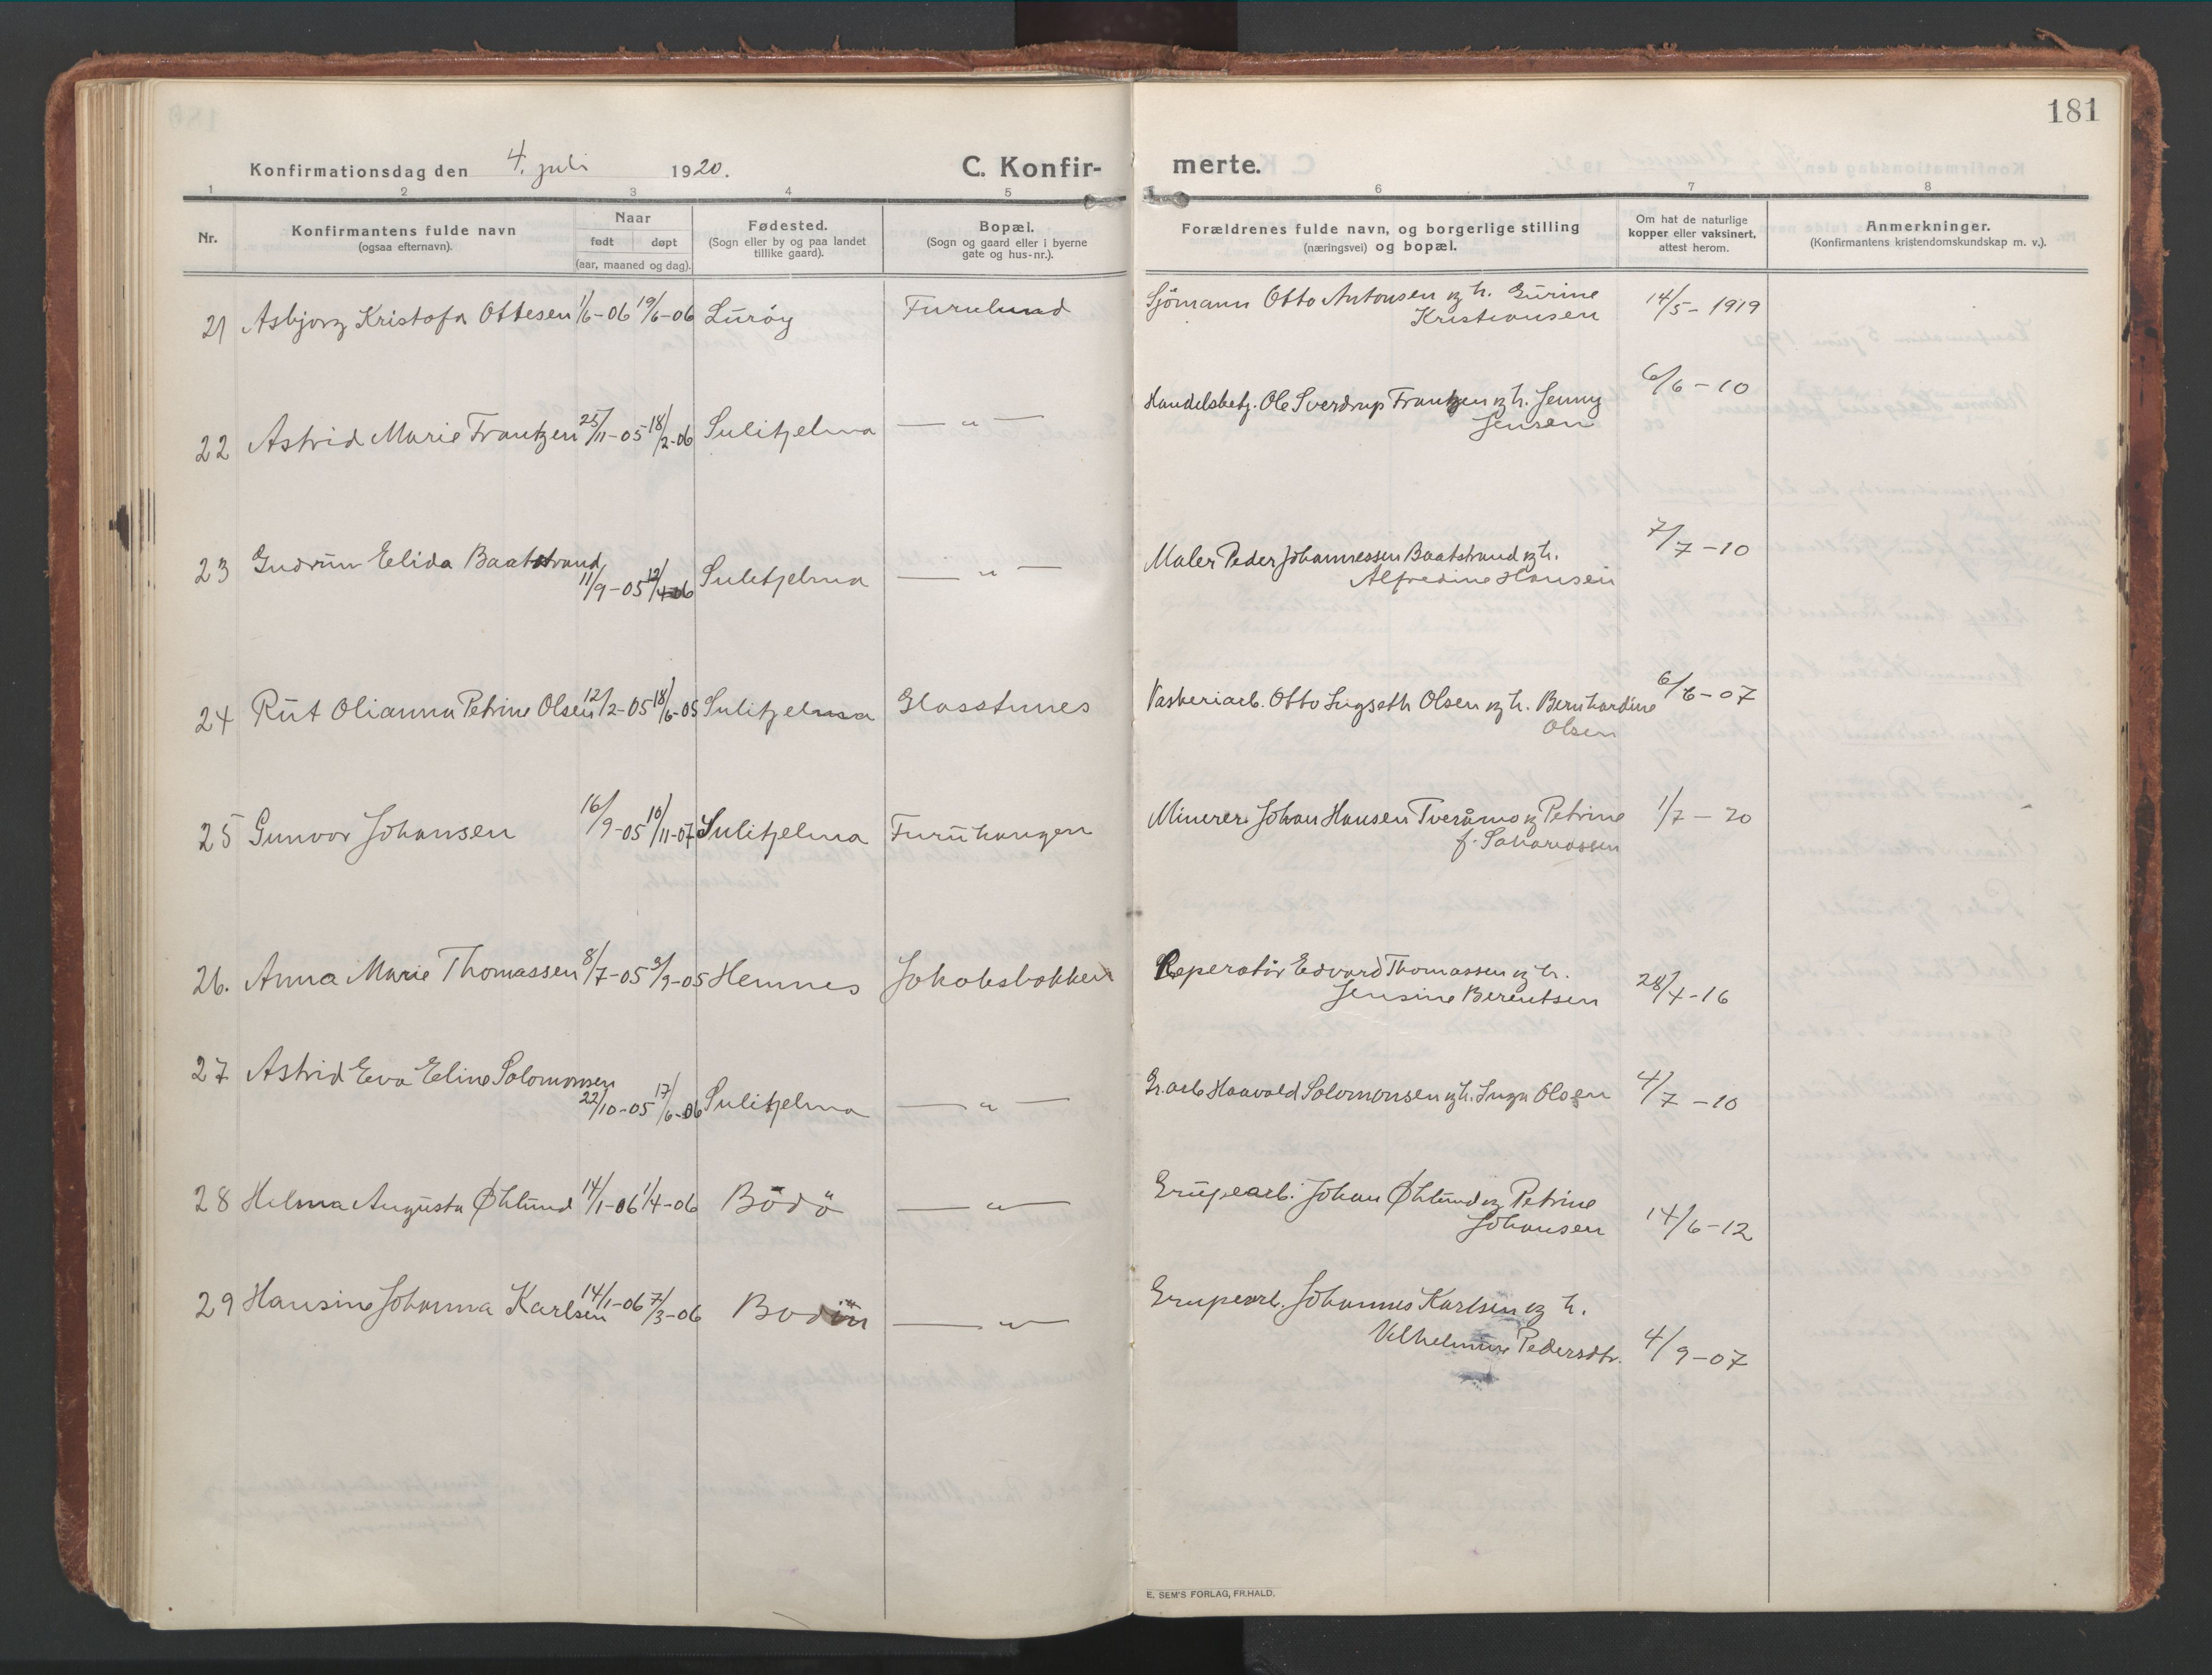 181
Konfirmationsdag den 4. juli 1920.
C. Konfir-
merte.
1 2 3 4 5 6 7 8
Nr.
Konfirmantens fulde navn
(ogsaa efternavn).
Naar
født døpt
(aar, maaned og dag).
Fødested.
(Sogn eller by og paa landet
tillike gaard).
Bopæl.
(Sogn og gaard eller i byerne
gate og hus-nr.).
Forældrenes fulde navn, og borgerlige stilling
(næringsvei) og bopæl.
Om hat de naturlige
kopper eller vaksinert,
attest herom.
Anmerkninger.
(Konfirmantens kristendomskundskap m. v.).
21 Asbjorg Kristofa Ottesen 1/6-06 19/6-06 Luröy Furulund Sjömann Otto Antonsen og h. Gurine 14/5-1919
Kristiansen
22 Astrid Marie Frantzen 25/11-05 18/2-06 Sulitjelma — " — Handelsbetj. Ole Sverdrup Frantzen og h. Jenny 6/6-10
Jensen
23 Gudrun Elida Baatstrand
11/9-05 12/4-06 Sulitjelma — " — Maler Peder Johannessen Baatstrand og h. 7/7-10
Alfredine Hansen
24 Rut Olianna Petrine Olsen 12/2-05 18/6-05 Sulitjelma Glasstunes Vaskeriarb. Otto Ingseth Olsen og h. Bernhardine 6/6-07
Olsen
25 Gunvor Johansen 16/9-05 10/11-07 Sulitjelma Furuhaugen Minerer Johan Hansen Tveråmo og Petrine 1/7-20
f. Sakariassen
26. Anna Marie Thomassen 8/7-05 3/9-05 Hemnes Jakobsbakken Reperatör Edvard Thomassen og h. 28/4-16
Jensine Berentsen
27 Astrid Eva Eline Solomonsen
22/10-05 17/6-06 Sulitjelma — " — Gr.arb Haavald Solomonsen og h. Inga Olsen 4/7-10
28 Hilma Augusta Øhlund 14/1-06 1/4-06 Bodö — " — Grupearb. Johan Øhlund og Petrine 14/6-12
Johansen
29 Hansine Johanna Karlsen 14/1-06 7/3-06 Bodin — " — Grupearb. Johannes Karlsen og h.
Vilhelmine Pedersdtr. 4/9-07
E. SEM'S FORLAG, FR.HALD.